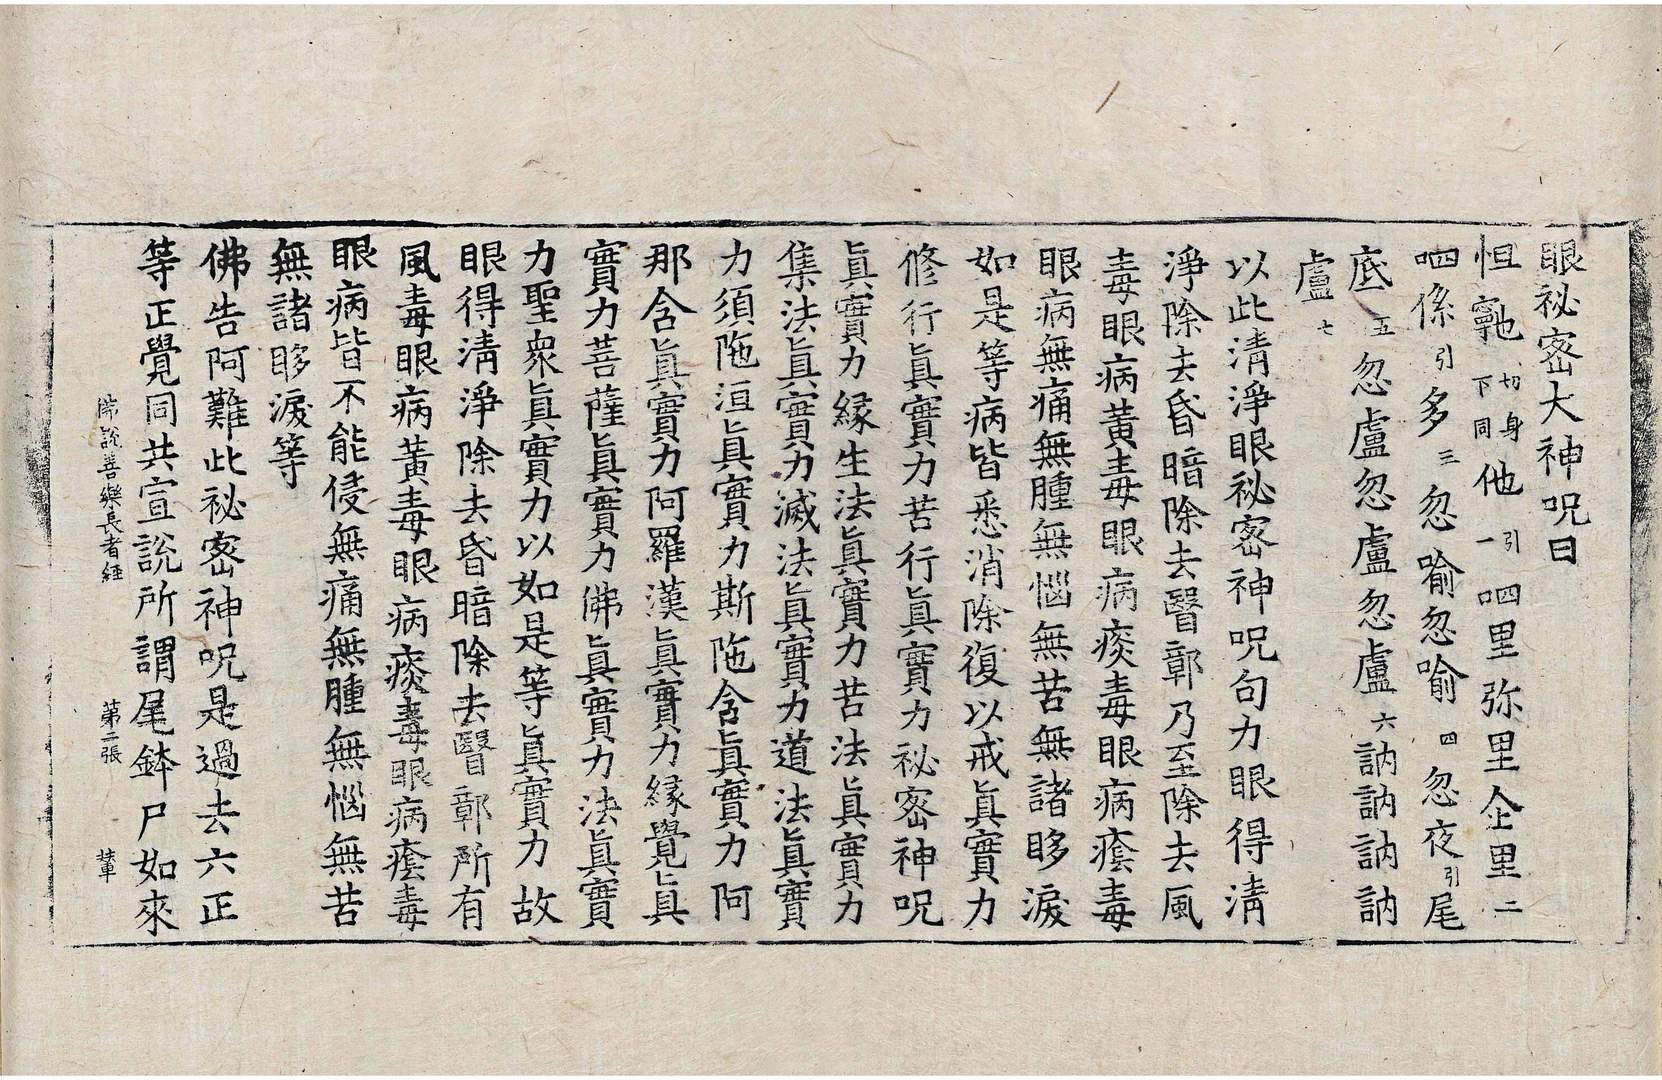 眼祕密大神呪曰
怛𩕳切身下同他引一呬里弥里㐰里二
呬係引多三忽喻忽喻四忽夜引尾
底五忽盧忽盧忽盧六訥訥訥訥
盧七
以此清淨眼祕密神呪句力眼得清
淨除去昏暗除去瞖鄣乃至除去風
毒眼病黃毒眼病痰毒眼病癊毒
眼病無痛無腫無惱無苦無諸眵淚
如是等病皆悉消除復以戒眞實力
修行眞實力苦行眞實力祕密神呪
眞實力緣生法眞實力苦法眞實力
集法眞實力滅法眞實力道法眞實
力須陁洹眞實力斯陁含眞實力阿
那含眞實力阿羅漢眞實力緣覺眞
實力菩薩眞實力佛眞實力法眞實
力聖衆眞實力以如是等眞實力故
眼得清淨除去昏暗除去瞖鄣所有
風毒眼病黃毒眼病痰毒眼病癊毒
眼病皆不能侵無痛無腫無惱無苦
無諸眵淚等
佛告阿難此祕密神呪是過去六正
等正覺同共宣說所謂尾鉢尸如來
佛說善樂長者經 第二張 輦